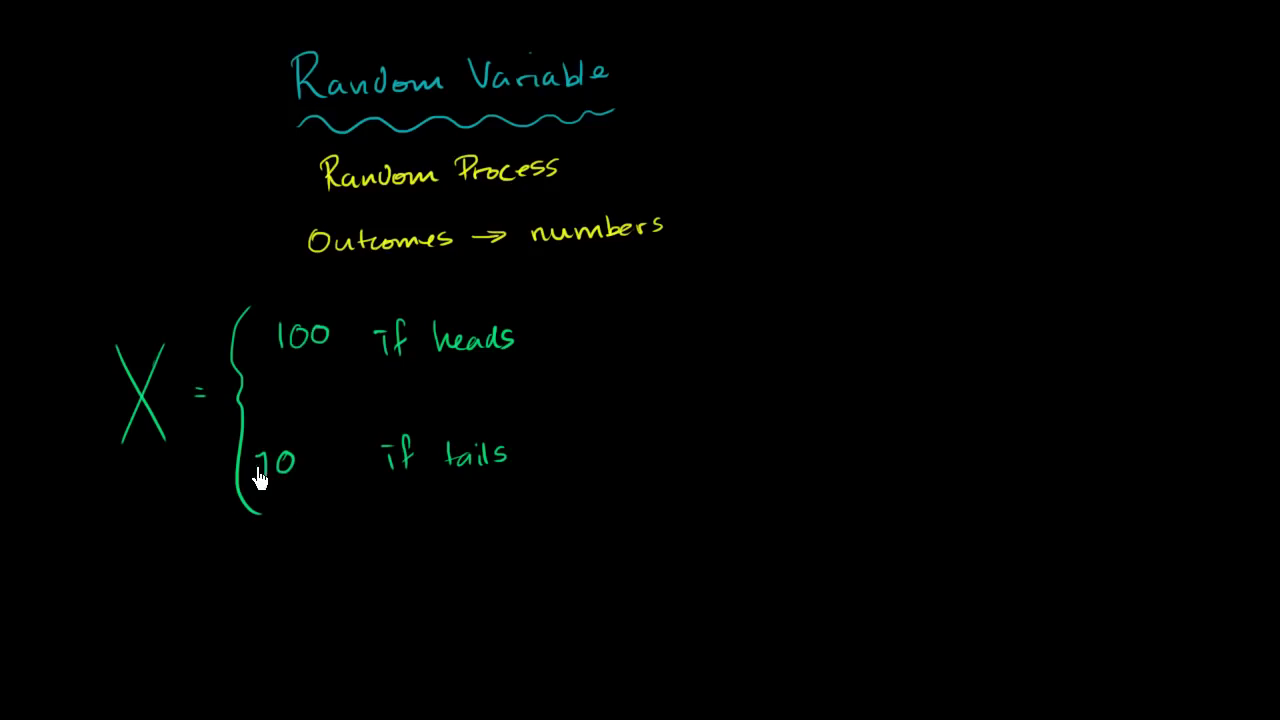 Random Variable
Random Process
Outcomes → numbers
X = { 100 if heads
10 if tails